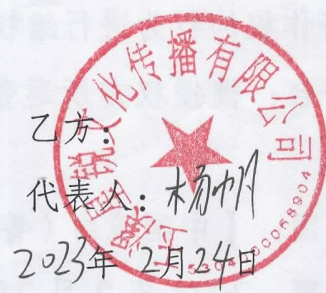 上溪睿锐文化传播有限公司
乙方：
代表人：杨帆
2023年 2月24日